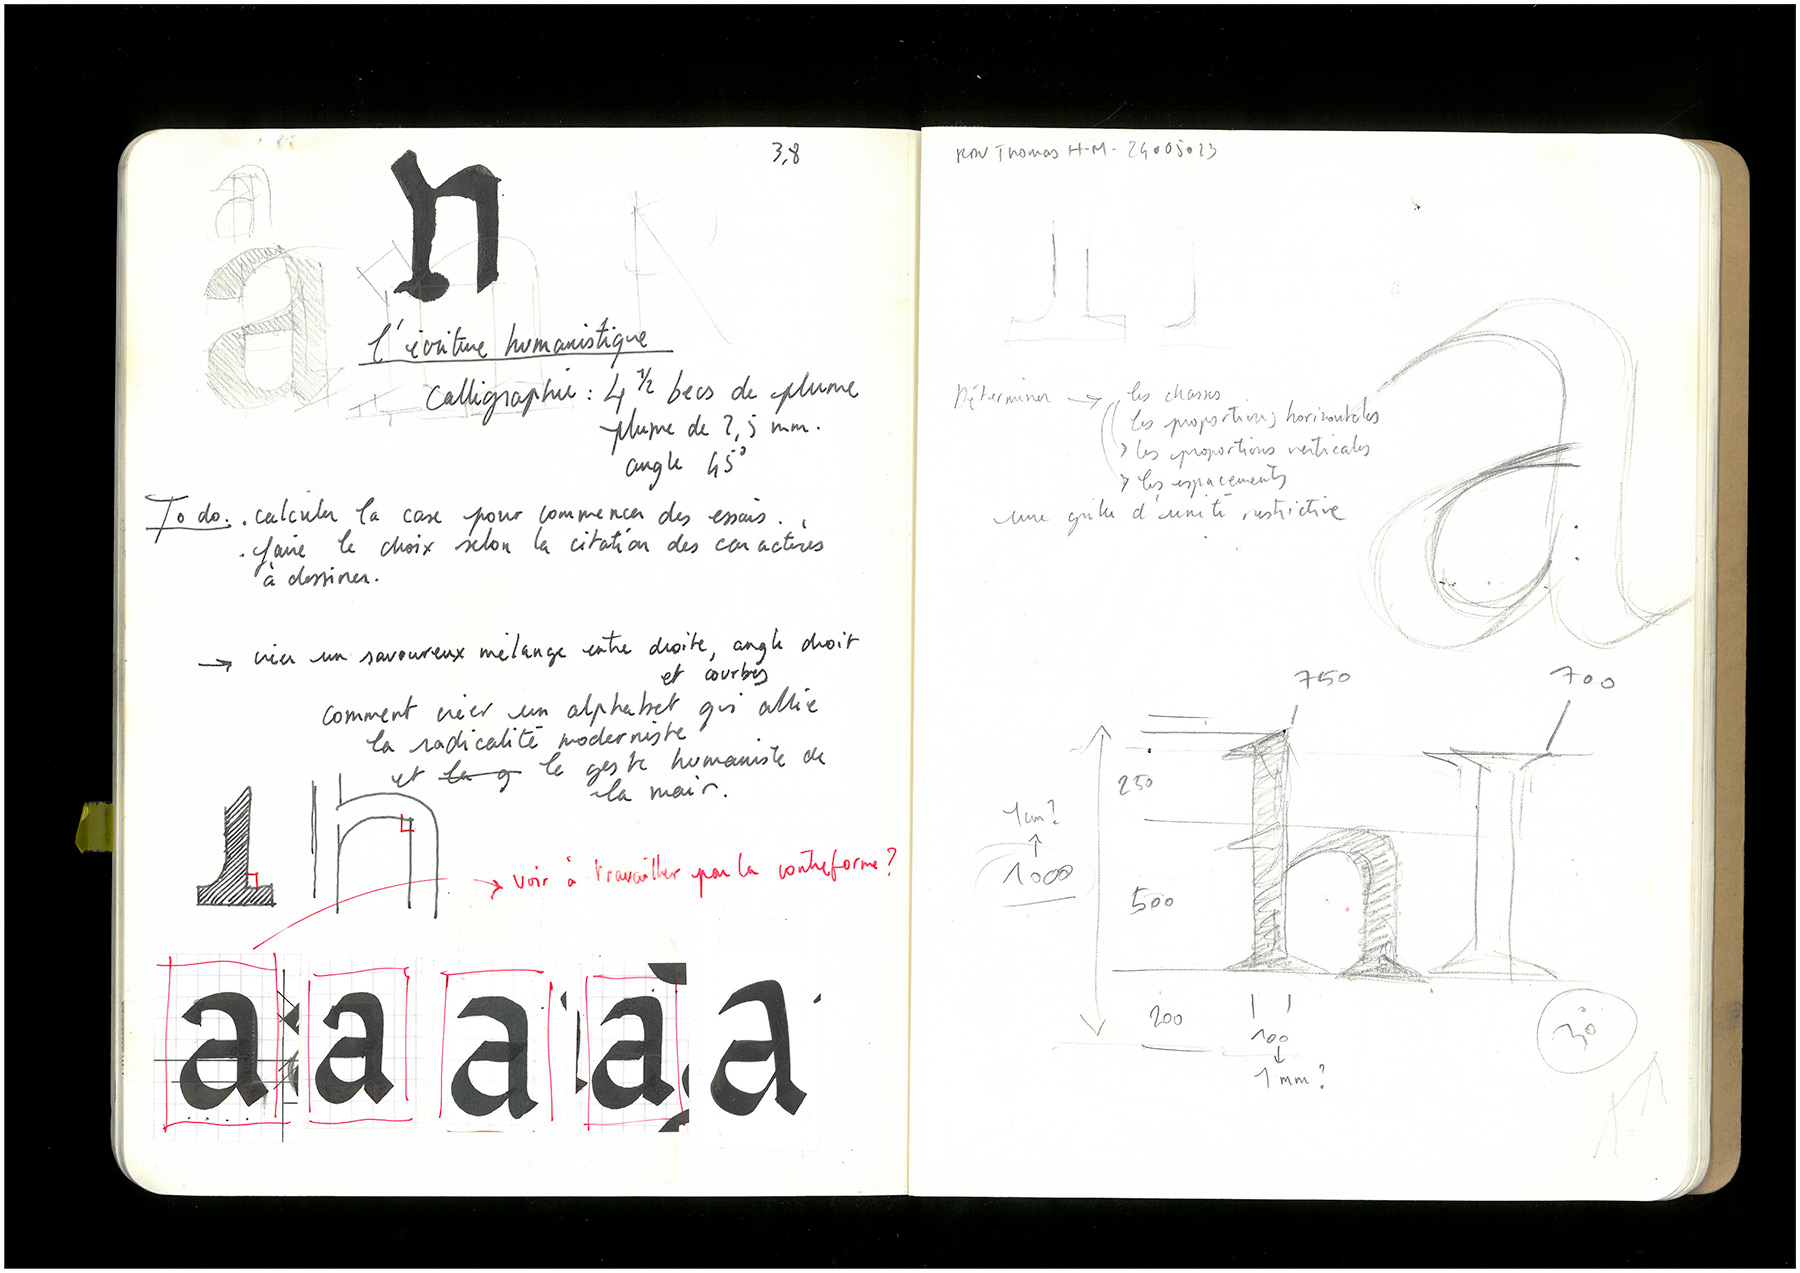 3,8
n
l'écriture humanistique
Calligraphie : 4 1/2 becs de plume
plume de 2,5 mm.
angle 45°
To do. . calculer la case pour commencer des essais.
. faire le choix selon la citation des caractères
à dessiner.
→ créer un savoureux mélange entre droite, angle droit
et courbes
comment créer un alphabet qui allie
la radicalité moderniste
et le geste humaniste de
la main.
1 h
→ voir à travailler par la contreforme?
a a a a a
RDV Thomas H-M - 24.05.23
a
Déterminer → les chasses
les proportions horizontales
les proportions verticales
les espacements
une grille d'unité restrictive
750
700
250
1 cm?
1000
500
h I
200
100
1 mm?
30°